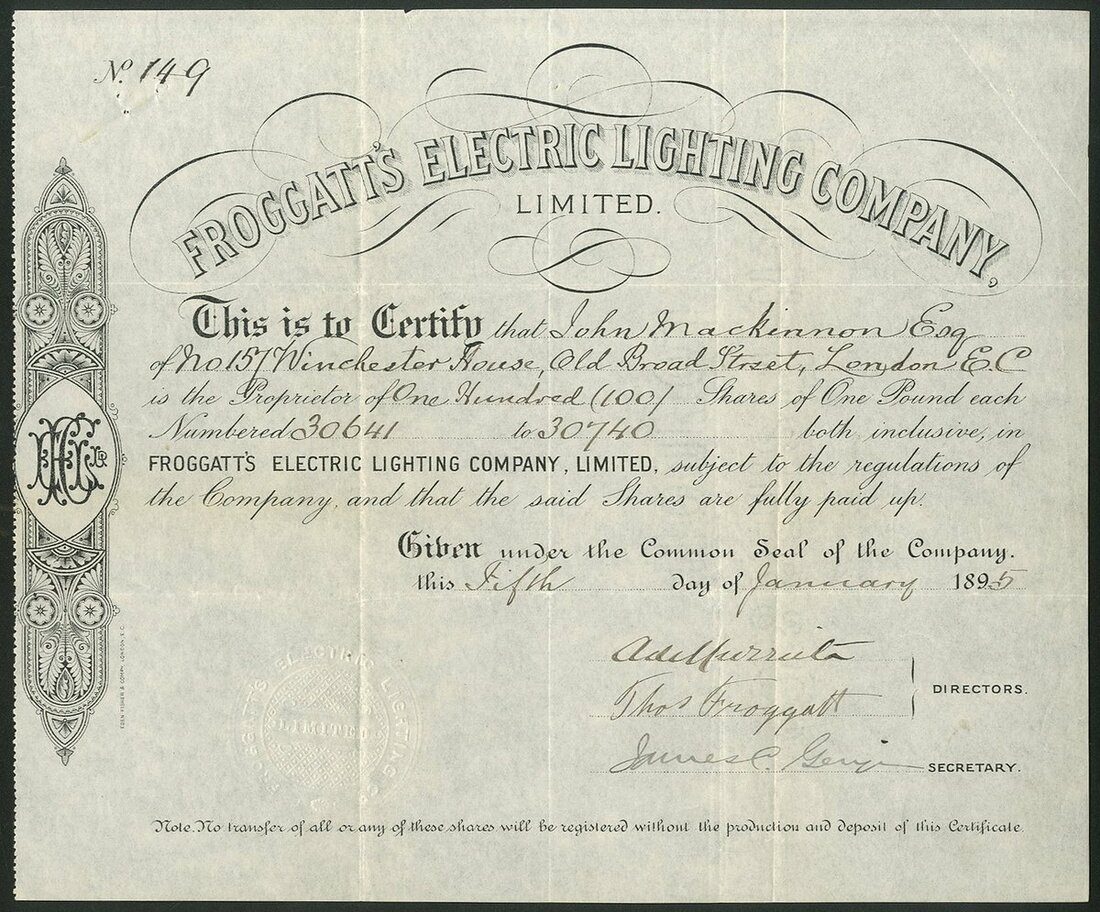 No. 149
FROGGATT'S ELECTRIC LIGHTING COMPANY,
LIMITED.
This is to Certify that John Mackinnon Esq
of No 157 Winchester House, Old Broad Street, London E.C
is the Proprietor of One Hundred (100) Shares of One Pound each
Numbered 30641 to 30740 both inclusive, in
FROGGATT'S ELECTRIC LIGHTING COMPANY, LIMITED, subject to the regulations of
the Company, and that the said Shares are fully paid up.
Given under the Common Seal of the Company.
this Fifth day of January 1895
Thos Froggatt
DIRECTORS.
James C.
SECRETARY.
FROGGATT'S ELECTRIC LIGHTING
LIMITED
EDEN FISHER & COMPY. LONDON, E.C.
Note. No transfer of all or any of these shares will be registered without the production and deposit of this Certificate.